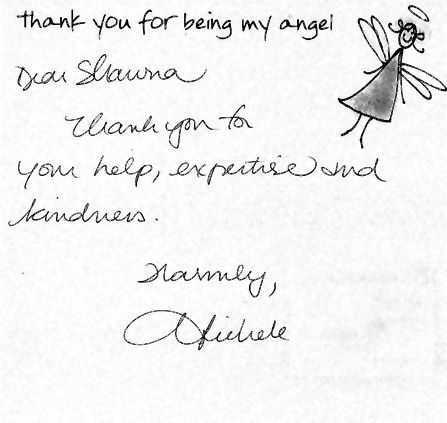 thank you for being my angel
Dear Shawna
Thank you for
your help, expertise and
kindness.
Warmly,
Michele